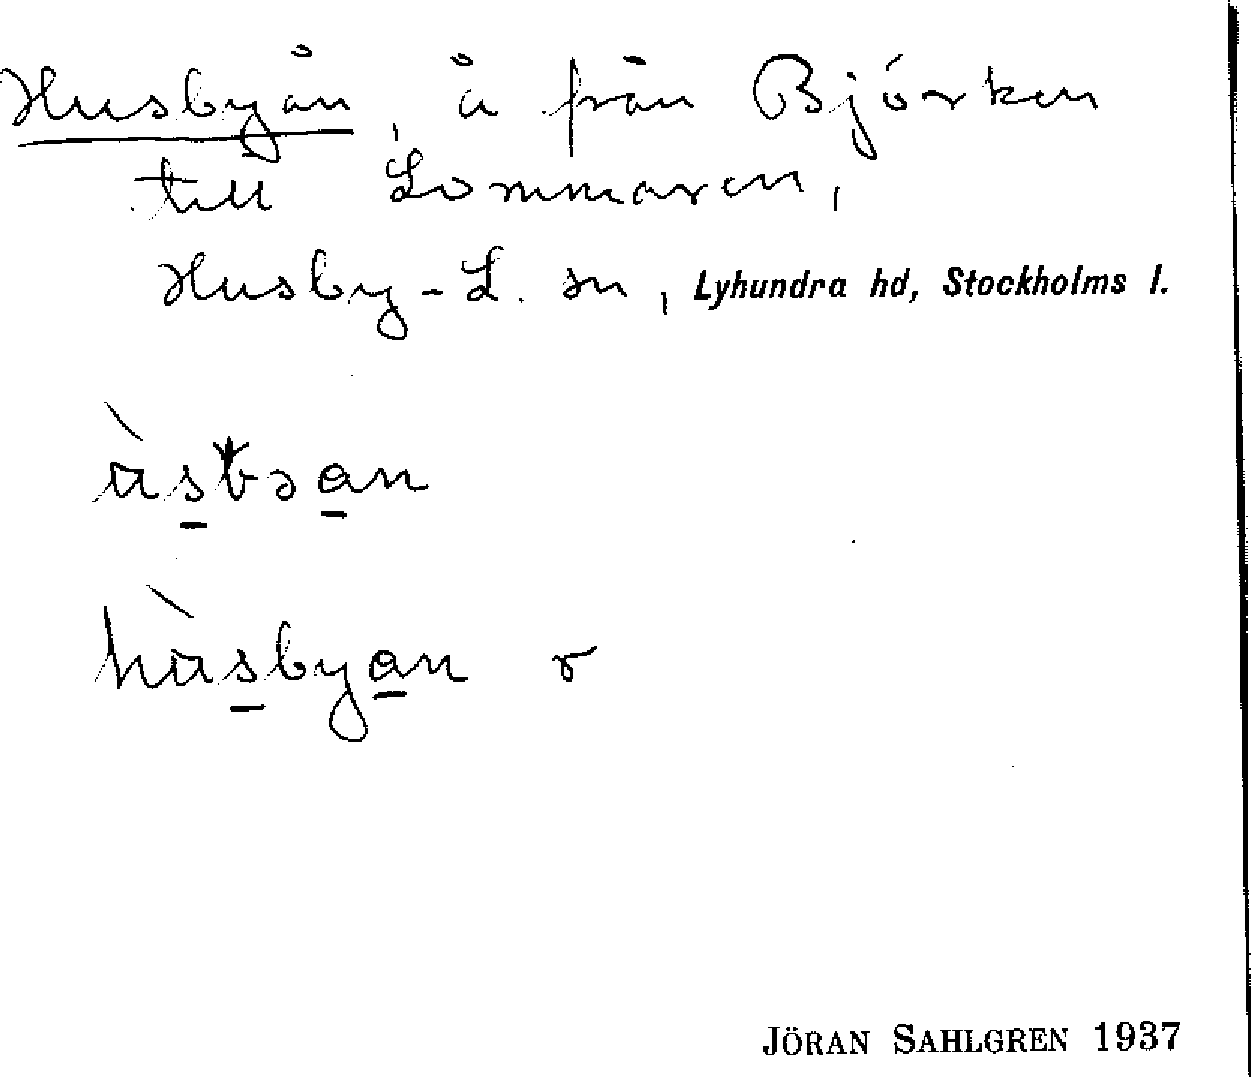 Husbyån, å från Björken
till Lommaren,
Husby-L. sn, Lyhundra hd, Stockholms l.
hùsbyan r
JÖRAN SAHLGREN 1937